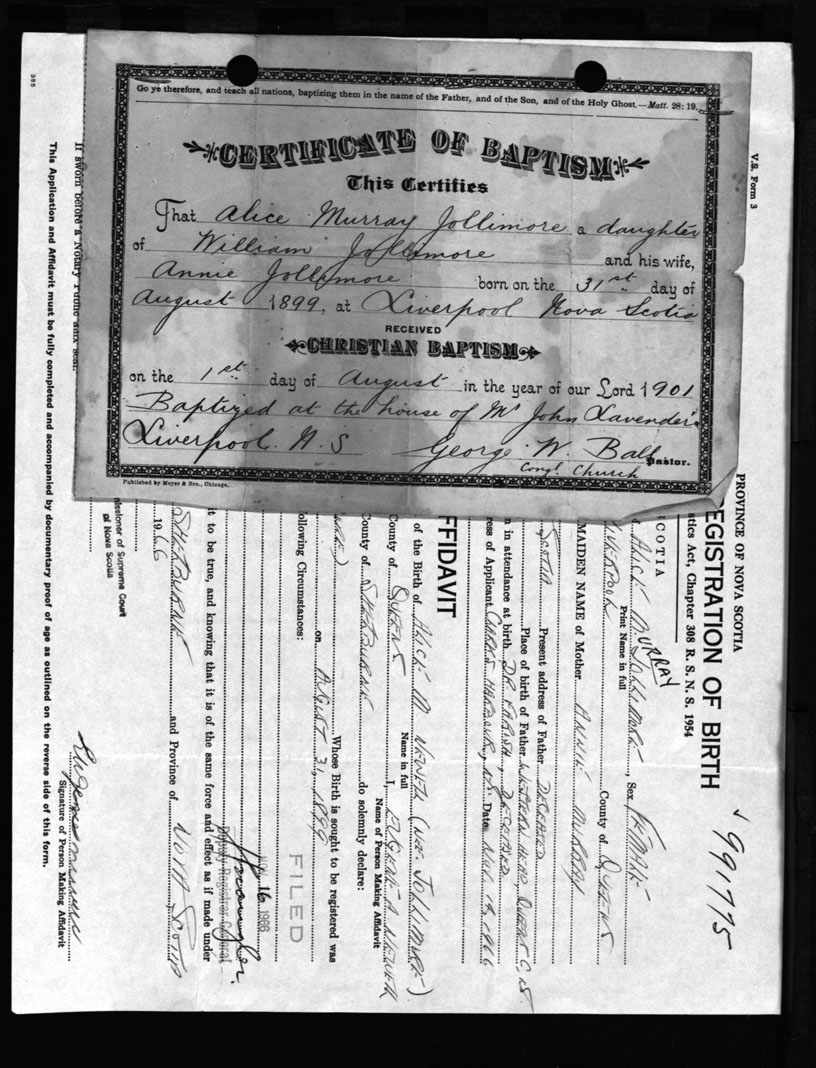 Go ye therefore, and teach all nations, baptizing them in the name of the Father, and of the Son, and of the Holy Ghost.—Matt. 28: 19.
CERTIFICATE OF BAPTISM
This Certifies
That Alice Murray Jollimore a daughter
of William Jollimore and his wife,
Annie Jollimore born on the 31st day of
August 1899, at Liverpool Nova Scotia
RECEIVED
CHRISTIAN BAPTISM
on the 1st day of August in the year of our Lord 1901
Baptized at the house of Mr John Lavender
Liverpool. N. S George W. Ball Pastor.
Congl. Church
Published by Meyer & Bro., Chicago.
V.S. Form 3
991775
PROVINCE OF NOVA SCOTIA
REGISTRATION OF BIRTH
stics Act, Chapter 308 R. S. N. S. 1954
SCOTIA
MURRAY
Alice M. Jollimore, Sex Female
Print Name in full
Liverpool County of Queens
MAIDEN NAME of Mother Annie Murray
Scotia Present address of Father Deceased
Place of birth of Father Queens Co. N.S.
n in attendance at birth Dr. Deceased
ress of Applicant N.S. Date 1966
FFIDAVIT
of the Birth of Alice M (nee Jollimore)
Name in full
County of Queens I,
Name of Person Making Affidavit
County of Shelburne do solemnly declare:
Whose Birth is sought to be registered was
on August 31, 1899
ollowing Circumstances:
FILED
NOV 16 1966
Deputy Registrar General
it to be true, and knowing that it is of the same force and effect as if made under
Shelburne and Province of Nova Scotia
1966
missioner of Supreme Court
of Nova Scotia
Signature of Person Making Affidavit
If sworn before a Notary Public affix seal.
This Application and Affidavit must be fully completed and accompanied by documentary proof of age as outlined on the reverse side of this form.
385